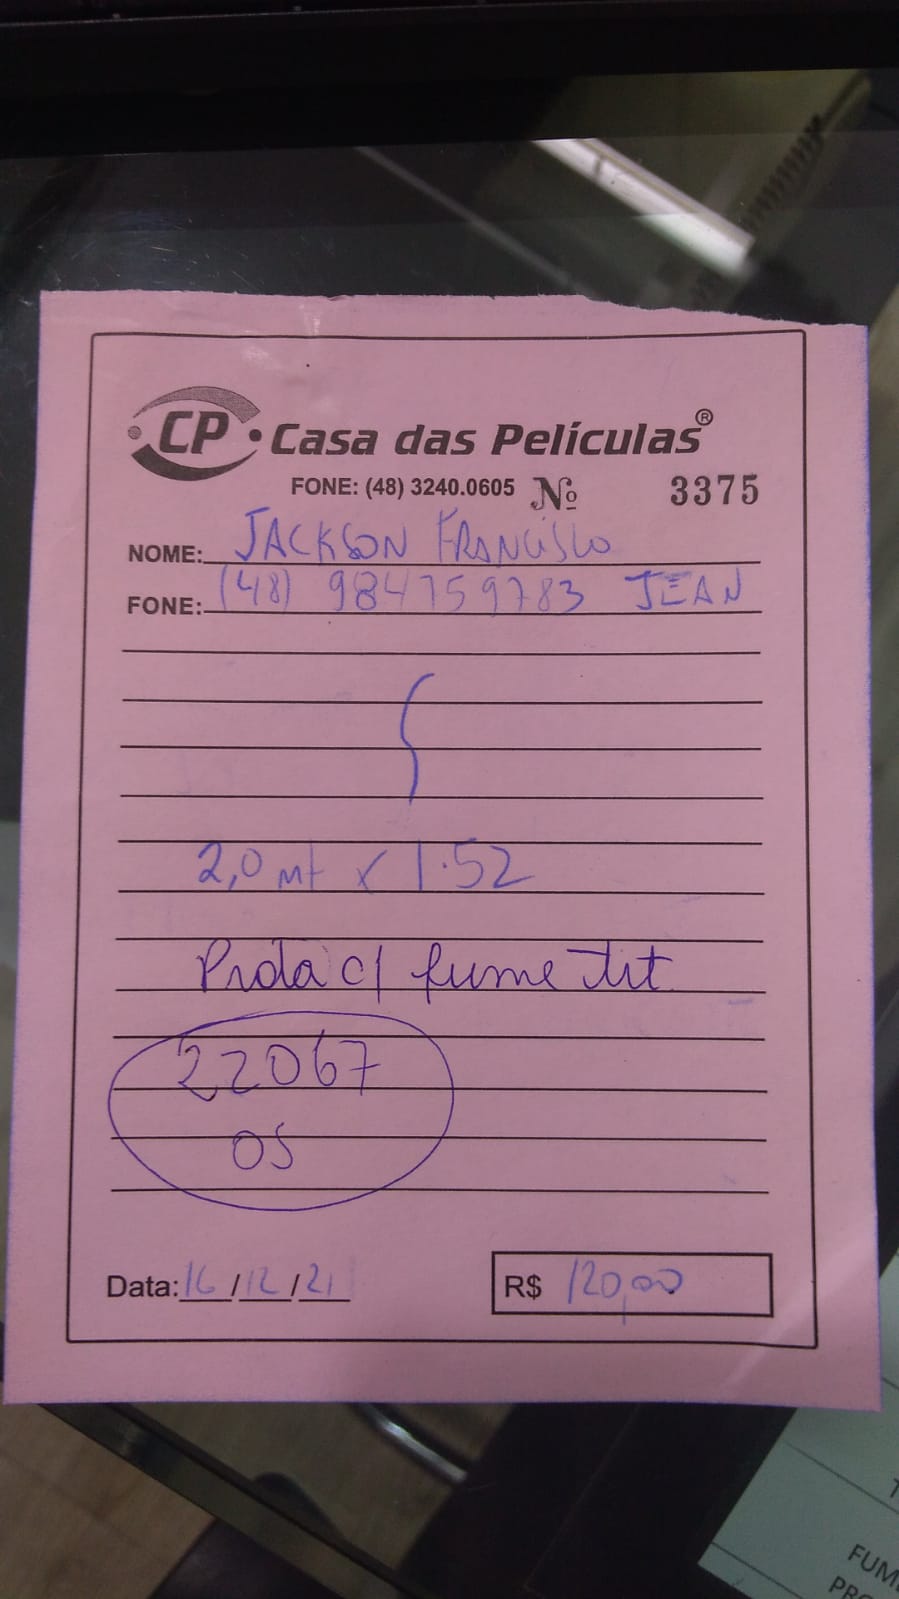 CP Casa das Películas®
FONE: (48) 3240.0605 Nº 3375
NOME: JACKSON FRANCISCO
FONE: (48) 984759783 JEAN
2,0 mt x 1.52
c/ fume
22067
OS
Data: 16/12/21 R$ 120,00
FUM
PRO